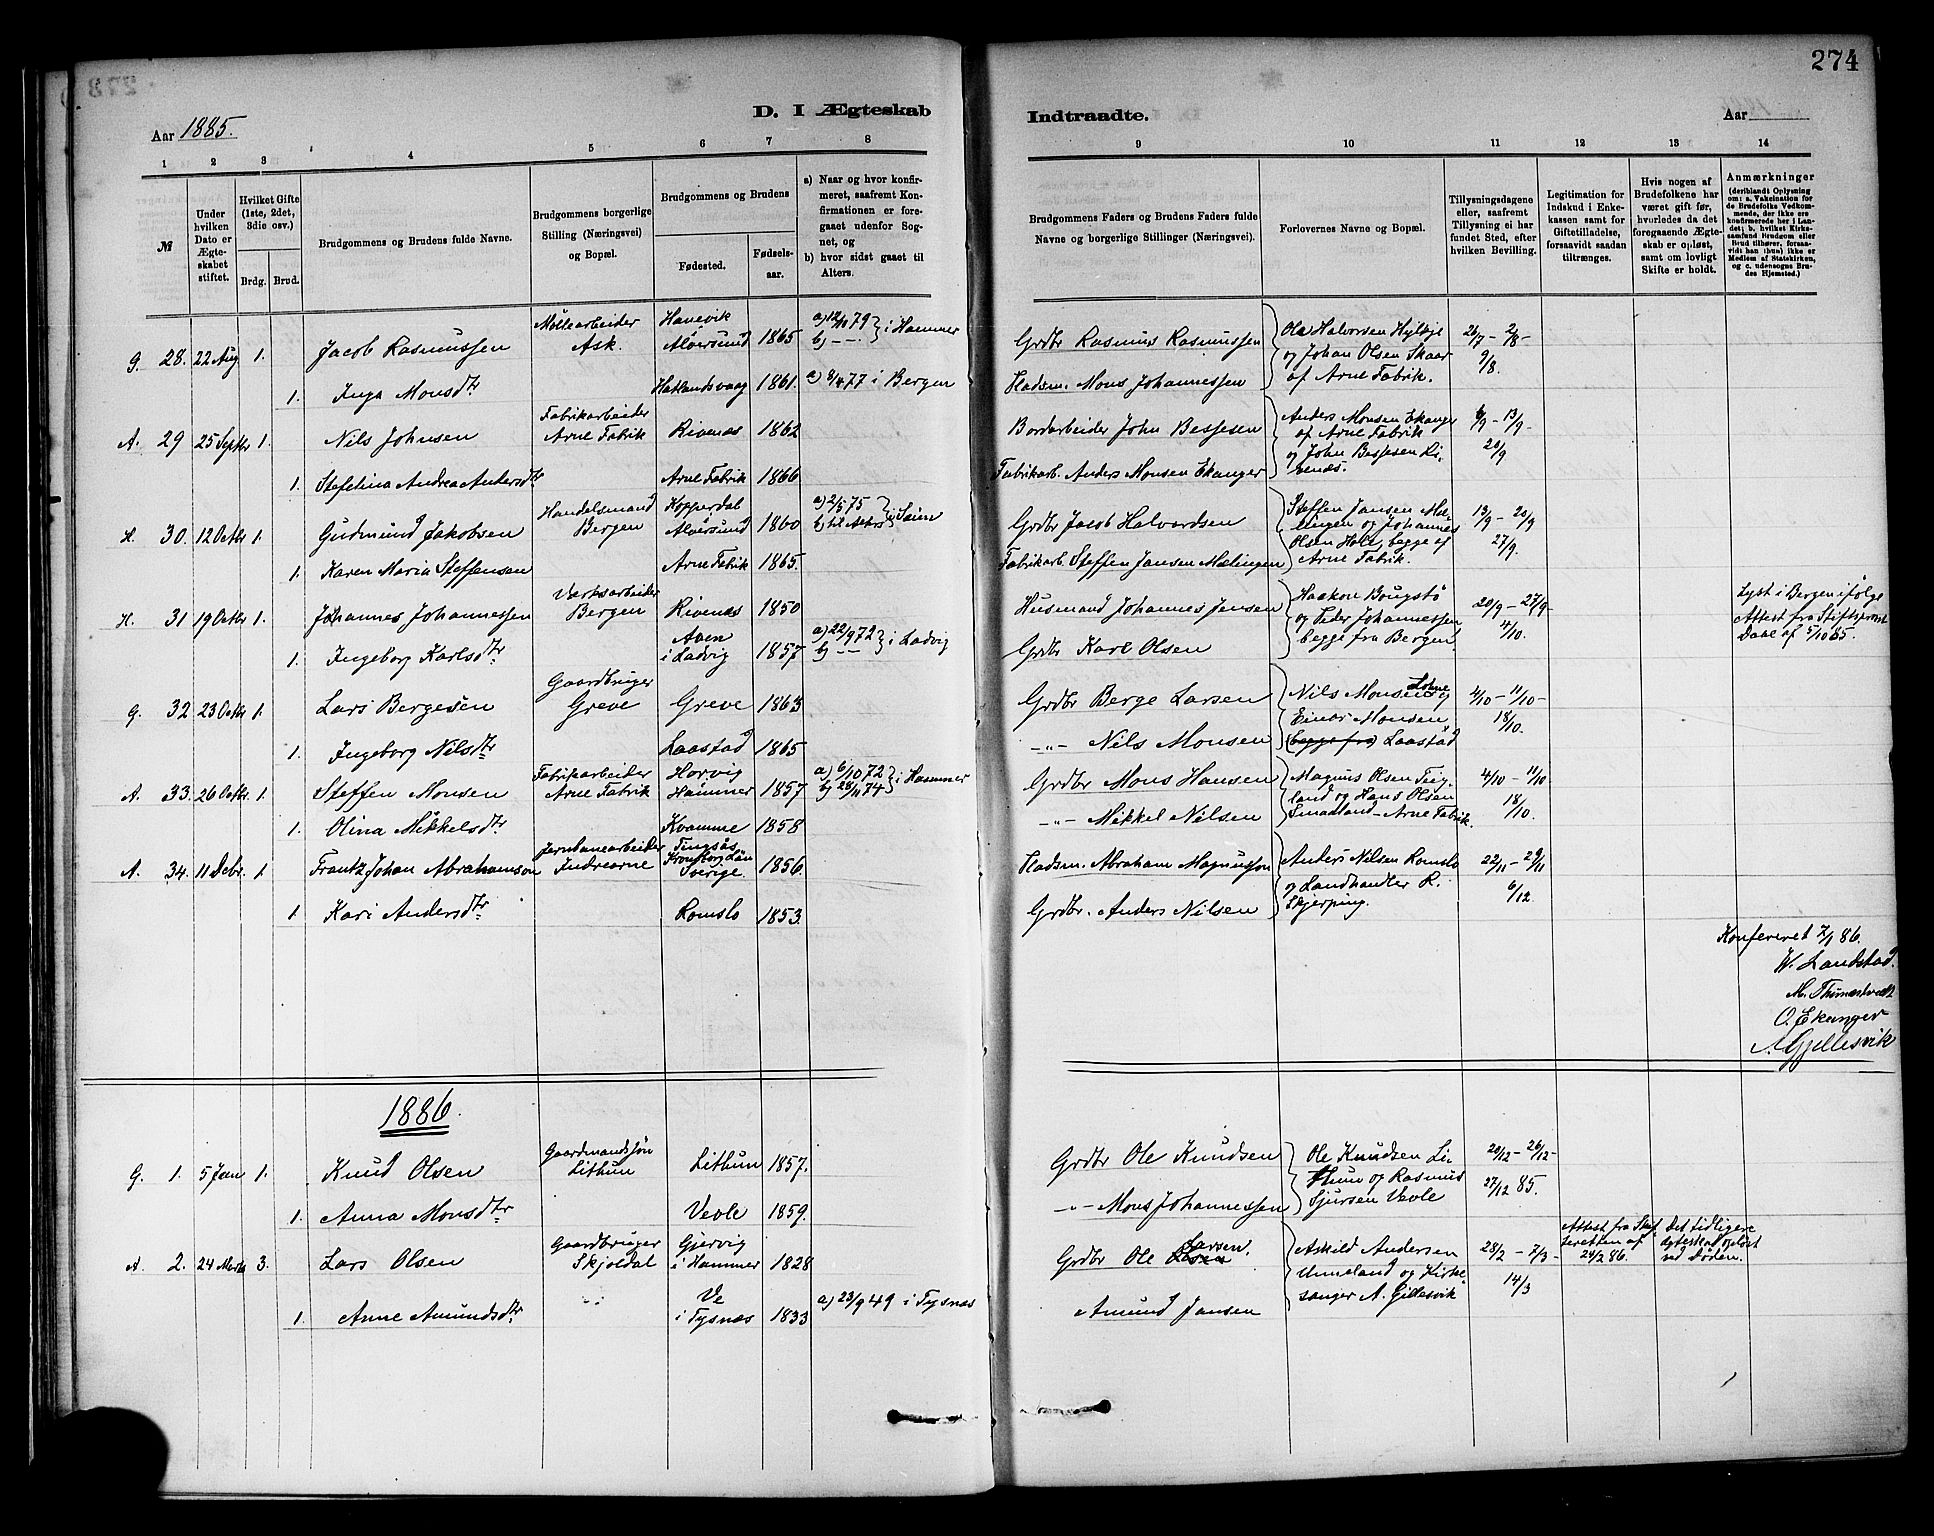 274
D. I Ægteskab
Indtraadte.
Aar 1885.
Aar
1 2 3 4 5 6 7 8
9 10 11 12 13 14
№
Under hvilken Dato er Ægteskabet stiftet.
Hvilket Gifte (1ste, 2det, 3die osv.)
Brdg. Brud.
Brudgommens og Brudens fulde Navne.
Brudgommens borgerlige Stilling (Næringsvei) og Bopæl.
Brudgommens og Brudens
Fødested.
Fødselsaar.
a) Naar og hvor konfirmeret, saafremt Konfirmationen er foregaaet udenfor Sognet, og
b) hvor sidst gaaet til Alters.
Brudgommens Faders og Brudens Faders fulde Navne og borgerlige Stillinger (Næringsvei).
Forlovernes Navne og Bopæl.
Tillysningsdagene eller, saafremt Tillysning ei har fundet Sted, efter hvilken Bevilling.
Legitimation for Indskud i Enkekassen samt for Giftetilladelse, forsaavidt saadan tiltrænges.
Hvis nogen af Brudefolkene har været gift før, hvorledes da det foregaaende Ægteskab er opløst, samt om lovligt Skifte er holdt.
Anmærkninger
(deriblandt Oplysning om: a. Vakcination for de Brudefolks Vedkommende, der ikke ere konfirmerede her i Landet; b. hvilket Kirkesamfund Brudgom eller Brud tilhører, forsaavidt han (hun) ikke er Medlem af Statskirken, og c. udensogns Brudes Hjemsted.)
G. 28. 22 Aug 1. Jacob Rasmussen Møllearbeider Ask. Hanevik Alversund 1865 a) 12/10 79 b) - - } i Hammer Grdbr Rasmus Rasmussen
1. Inga Monsdtr Hatlandsvaag 1861. a) 8/4 77 i Bergen Husm. Mons Johannessen
Ole Halvorsen Hylkje og Johan Olsen Skaar af Arne Fabrik. 26/7 - 2/8 - 9/8.
A. 29 25 Septbr 1. Nils Johnsen Fabrikarbeider Arne Fabrik Rivenæs 1862 Bordarbeider John Bessesen
1. Stefelina Andrea Andersdtr Arne Fabrik 1866 Fabrikarb. Anders Monsen Ekanger
Anders Monsen Ekanger af Arne Fabrik og John Bessesen Rivenæs. 6/9 - 13/9 - 20/9
H. 30. 12 Octbr 1. Gudmund Jakobsen Handelsmand Bergen Kopperdal Alversund 1860 a) 2/5 75 b) til Alters } i Grdbr Jacob Halvardsen
1. Karen Maria Steffensen Arne Fabrik 1865. Fabrikarb. Steffen Jansen Mælingen
Steffen Jansen Mælingen og Johannes Olsen Hole, begge af Arne Fabrik. 13/9 - 20/9 27/9.
H. 31 19 Octbr 1. Johannes Johannessen Værksarbeider Bergen Rivenæs 1850 Husmand Johannes Jensen
1. Ingeborg Karlsdtr Aaen i Ladvig 1857 a) 22/9 72 b) - - } i Ladvig Grdbr Karl Olsen
Haakon Brugstø og Peder Johannessen begge fra Bergen 20/9 - 27/9 - 4/10.
Lyst i Bergen ifølge Attest fra Stiftsprovst Daae af 5/10 85.
G. 32 23 Octbr 1. Lars Bergesen Gaardbruger Greve Greve 1863 Grdbr Berge Larsen
1. Ingeborg Nilsdtr Laastad 1865 -"- Nils Monsen
Nils Monsen Lone og Einar Monsen (begge fra) Laastad 4/10 - 11/10 - 18/10.
A. 33. 26 Octbr 1. Steffen Monsen Fabrikarbeider Arne Fabrik Horvig Hammer 1857 a) 6/10 72 b) 28/11 74 } i Hammer Grdbr Mons Hansen
1. Olina Mikkelsdtr Kvamme 1858 -"- Mikkel Nilsen
Magnus Olsen Teigland og Hans Olsen Smaaland - Arne Fabrik. 4/10 - 11/10 18/10.
A. 34. 11 Debr. 1. Frantz Johan Abrahamson Jernbanearbeider Indrearne Tingsås Kronoborg Län Sverige. 1856. Husm. Abraham Magnusson
1. Kari Andersdtr Romslo 1853. Grdbr. Anders Nilsen
Anders Nilsen Romslo og Landhandler R. Skjerping. 22/11 - 29/11 6/12
Konfereret 7/1 86.
W. Landstad.
M. Thunestvedt
O. Ekanger
A. Gjellesvik
1886.
G. 1. 5 Jan 1. Knud Olsen Gaardmandssøn Lithun Lithun 1857. Grdbr Ole Knudsen
1. Anna Monsdtr Vevle 1859. -"- Mons Johannessen
Ole Knudsen Lithun og Rasmus Sjursen Vevle 20/12 - 26/12 - 27/12 85.
A. 2. 24 Marts 3. Lars Olsen Gaardbruger Skjoldal Gjervig i Hammer 1828 Grdbr Ole Larsen.
1. Anne Amundsdtr Ve i Tysnæs 1833 a) 23/9 49 i Tysnæs Amund Jansen
Askild Andersen Unneland og Kirkesanger A. Gillesvik 28/2 - 7/3 - 14/3
Attest fra Skifteretten af 24/2 86. Det tidligere Egteskab opløst ved Døden.